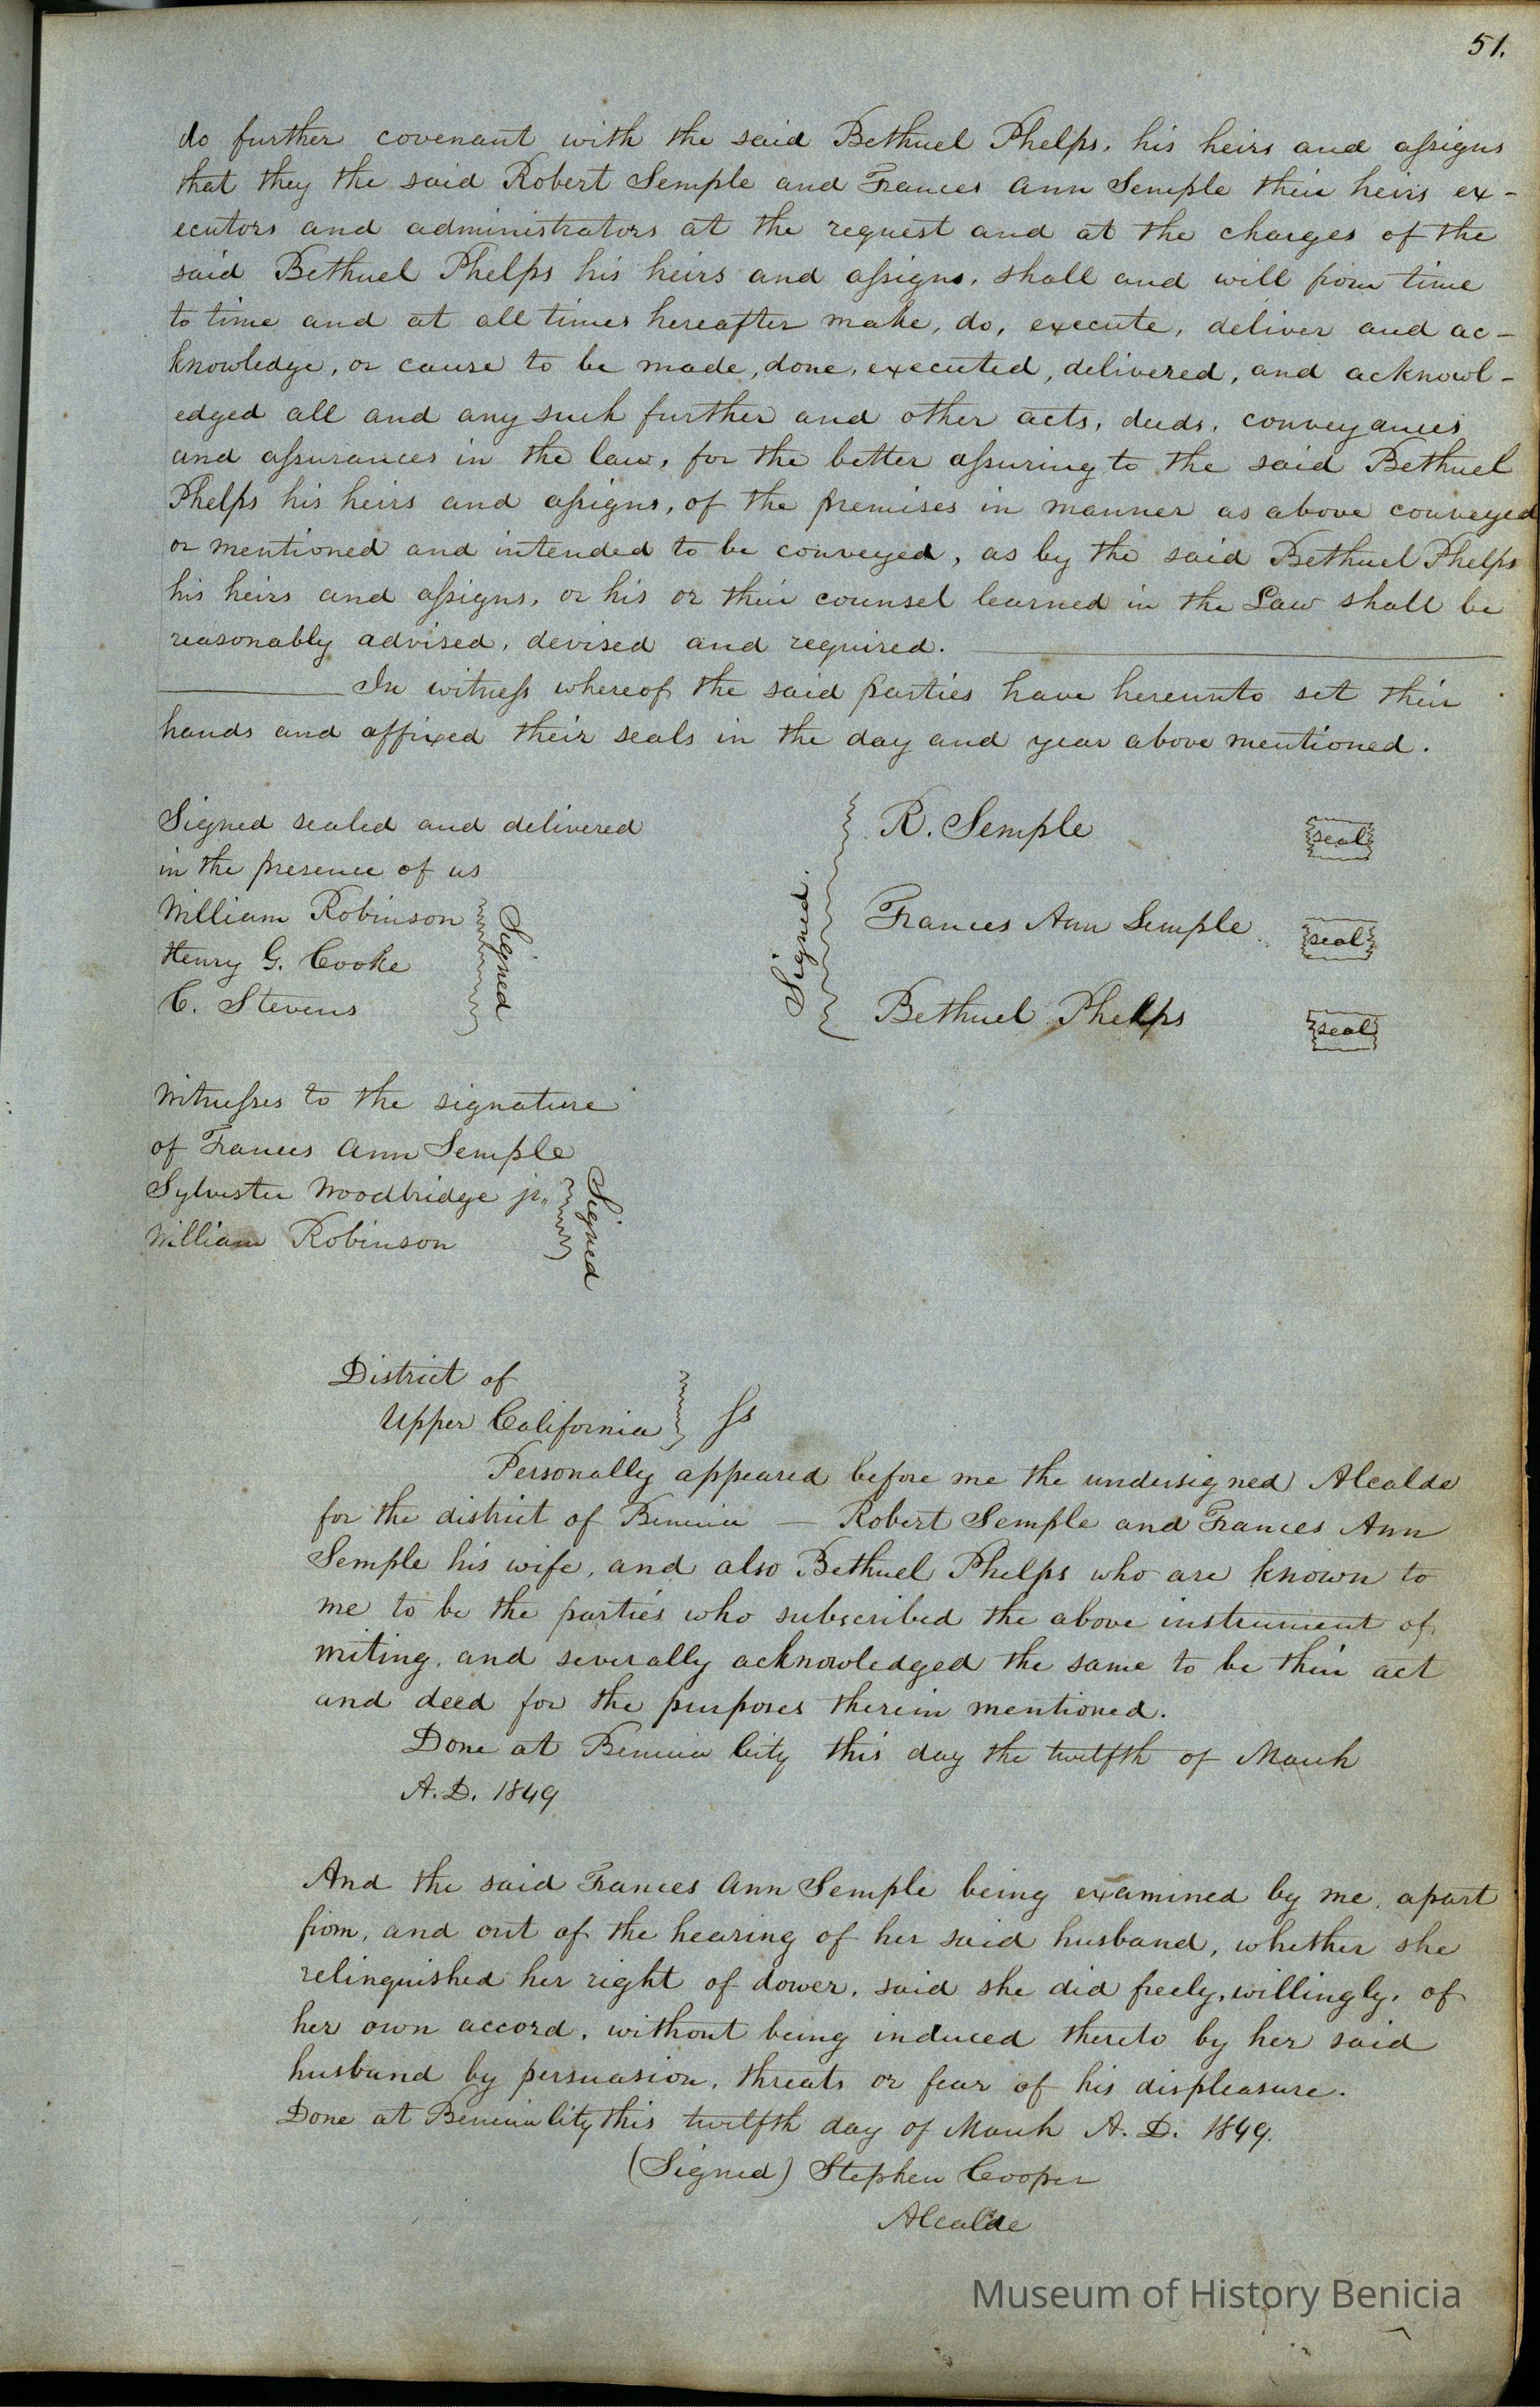 51.
do further covenant with the said Bethuel Phelps, his heirs and assigns
that they the said Robert Semple and Frances Ann Semple their heirs ex-
ecutors and administrators at the request and at the charges of the
said Bethuel Phelps his heirs and assigns, shall and will from time
to time and at all times hereafter make, do, execute, deliver and ac-
knowledge, or cause to be made, done, executed, delivered, and acknowl-
edged all and any such further and other acts, deeds, conveyances
and assurances in the law, for the better assuring to the said Bethuel
Phelps his heirs and assigns, of the premises in manner as above conveyed
or mentioned and intended to be conveyed, as by the said Bethuel Phelps
his heirs and assigns, or his or their counsel learned in the Law shall be
reasonably advised, devised and required.
In witness whereof the said parties have hereunto set their
hands and affixed their seals in the day and year above mentioned.
Signed sealed and delivered
in the presence of us
William Robinson
Henry G. Cooke
C. Stevens
Signed
Signed.
R. Semple seal
Frances Ann Semple seal
Bethuel Phelps seal
Witnesses to the signature
of Frances Ann Semple
Sylvester Woodbridge jr,,
William Robinson
Signed
District of
Upper California } ss
Personally appeared before me the undersigned Alcalde
for the district of Benicia — Robert Semple and Frances Ann
Semple his wife, and also Bethuel Phelps who are known to
me to be the parties who subscribed the above instrument of
writing, and severally acknowledged the same to be their act
and deed for the purposes therein mentioned.
Done at Benicia City this day the twelfth of March
A.D. 1849
And the said Frances Ann Semple being examined by me, apart
from, and out of the hearing of her said husband, whether she
relinquished her right of dower, said she did freely, willingly, of
her own accord, without being induced thereto by her said
husband by persuasion, threats or fear of his displeasure.
Done at Benicia City this twelfth day of March A.D. 1849.
(Signed) Stephen Cooper
Alcalde
Museum of History Benicia